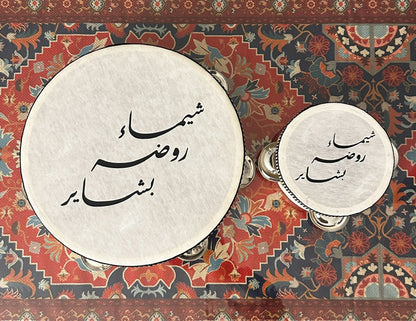 شيماء
روضه
بشاير
شيماء
روضه
بشاير